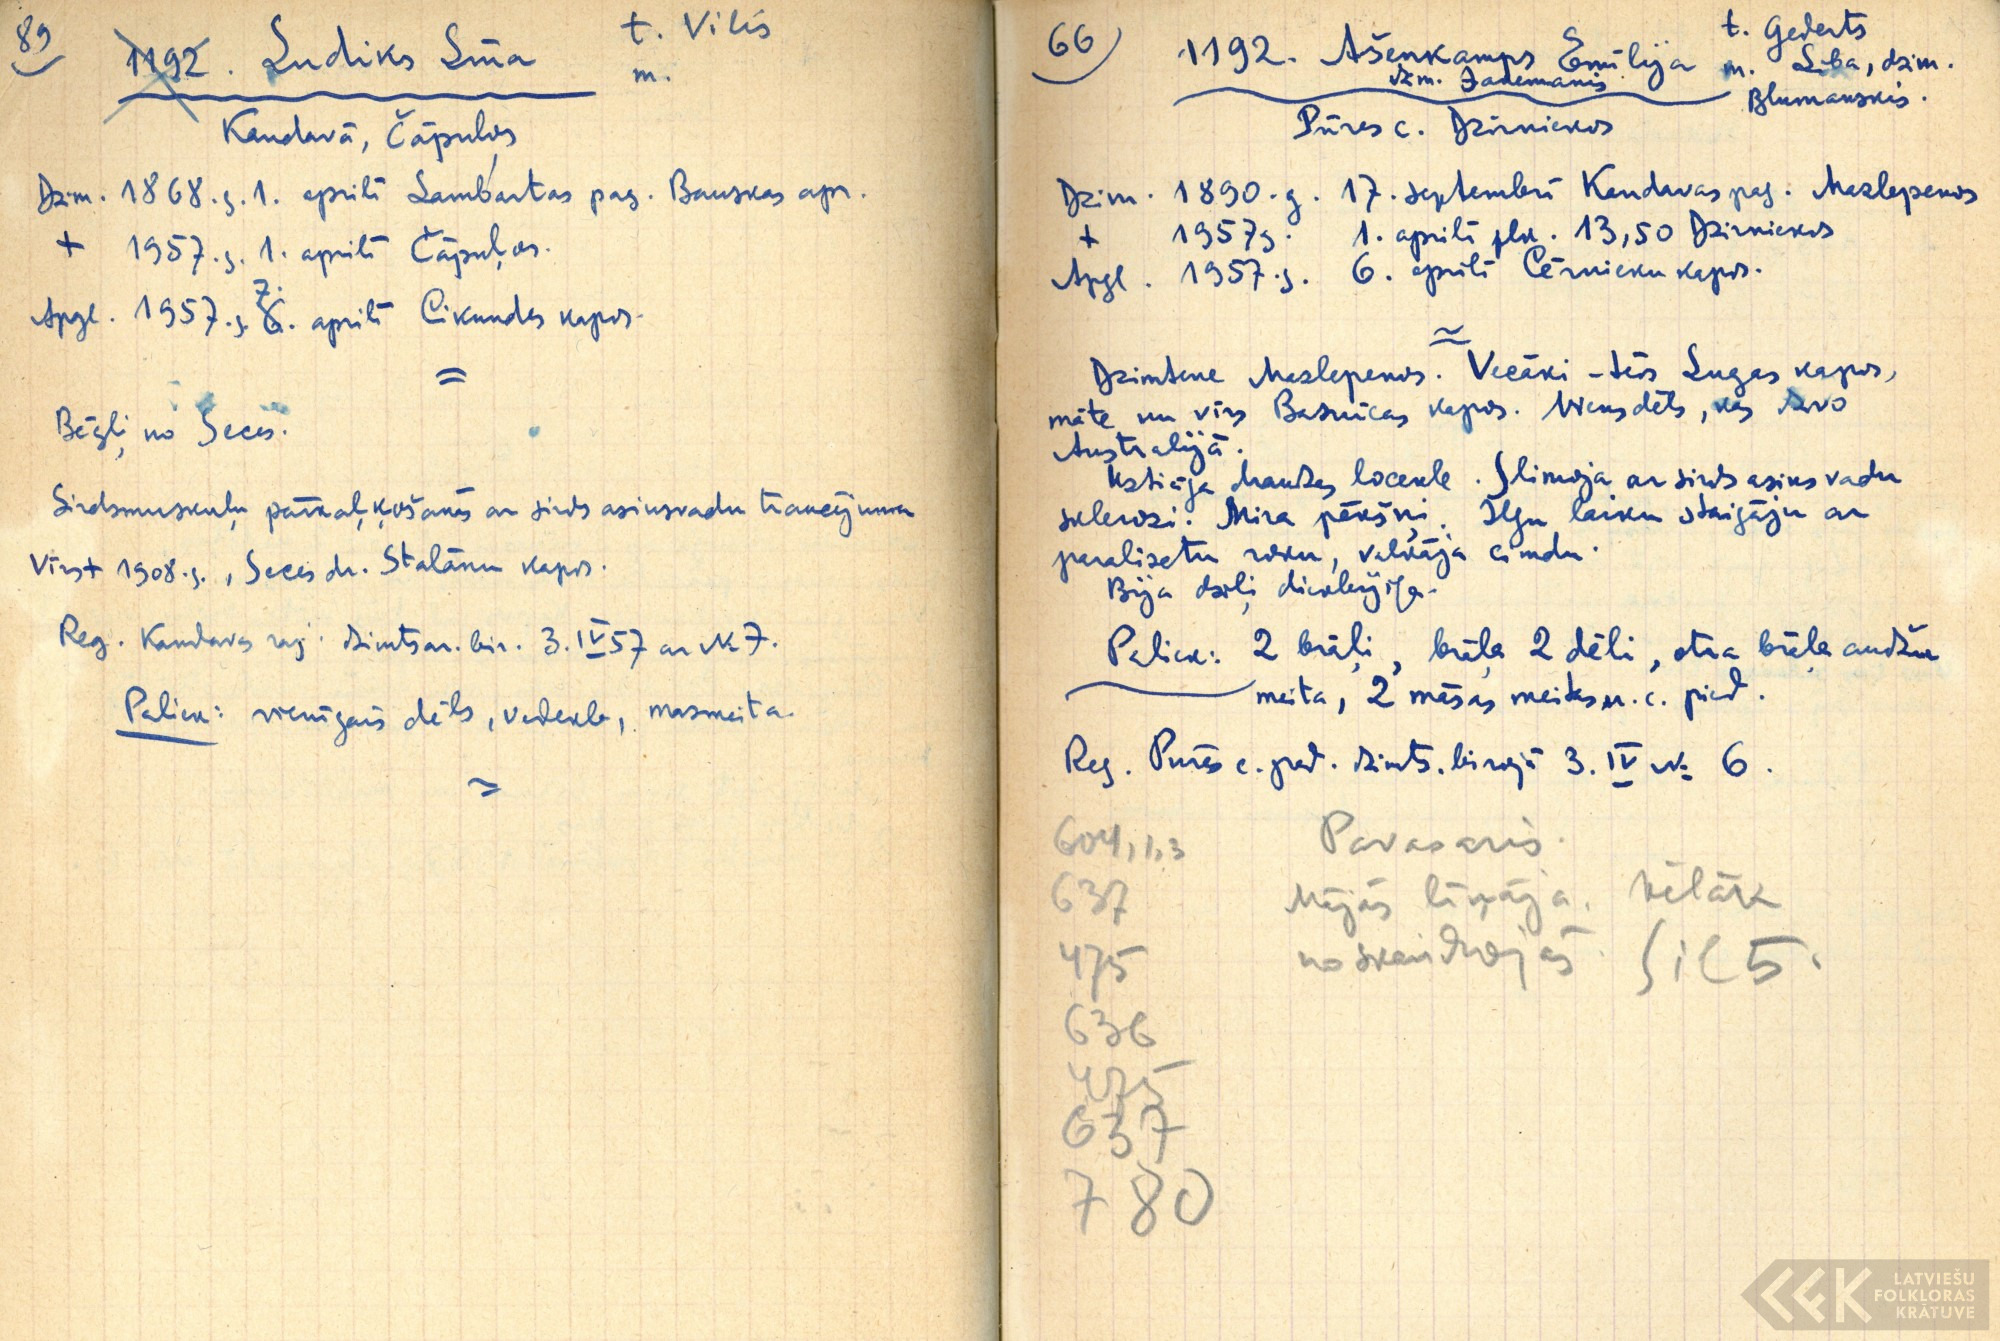 89
1192. Ludiks Līna t. Vilis
m.
Kandavā, Čāpuļos
Dzim. 1868.g. 1. aprīlī Lambārtas pag. Bauskas apr.
+ 1957.g. 1. aprīlī Čāpuļos.
7.
Apgl. 1957.g. 6. aprīlī Cikundes kapos.
=
Bēgļi no Seces.
Sirdsmuskuļu pārkaļķošanās ar sirds asinsvadu traucējumu
Vīrs + 1908.g., Seces dr. Stalānu kapos.
Reg. Kandavas raj. dzimtsar. bir. 3.IV57 ar № 7.
Paliek: vienīgais dēls, vedekla, mazmeita.
=
66
1192. Ašenkamps Emīlija t. Gederts
dzim. m. Lība, dzim.
Blumanskis.
Pūres c. Dzirniekos
Dzim. 1890.g. 17. septembrī Kandavas pag. Mazlepekos
+ 1957g. 1. aprīlī plk. 13,50 Dzirniekos
Apgl. 1957.g. 6. aprīlī Cērnieku kapos.
=
Dzimtene Mazlepekos. Vecāki - tēvs Lugas kapos,
māte un vīrs Baznīcas kapos. Viens dēls, kas dzīvo
Austrālijā.
Kārtīga draudzes locekle. Slimoja ar sirds asins vadu
sklerozi. Mira pēkšņi. Ilgu laiku staigāju ar
paralizētu roku, valkāja cimdu.
Bija dziļi dievbijīga.
Paliek: 2 brāļi, brāļa 2 dēli, otra brāļa audžu
meita, 2 māsas meitas u.c. pied.
Reg. Pūres c. pad. dzimts. birojā 3.IV № 6.
604,1,3 Pavasaris.
637 Mājās līņāja. Vēlāk
475 noskaidrojās. Silts.
636
475
637
780
LATVIEŠU
FOLKLORAS
KRĀTUVE